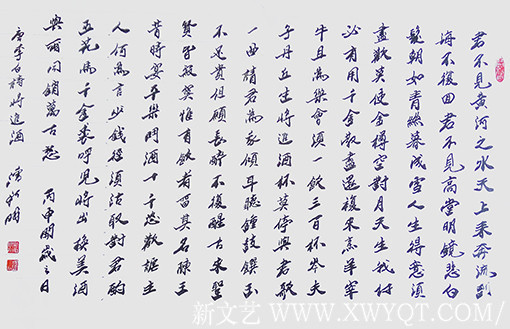 君不見黃河之水天上來奔流到
海不復回君不見高堂明鏡悲白
髮朝如青絲暮成雪人生得意須
盡歡莫使金樽空對月天生我材
必有用千金散盡還復來烹羊宰
牛且為樂會須一飲三百杯岑夫
子丹丘生將進酒杯莫停與君歌
一曲請君為我傾耳聽鐘鼓饌玉
不足貴但願長醉不復醒古來聖
賢皆寂寞惟有飲者留其名陳王
昔時宴平樂鬥酒十千恣歡謔主
人何為言少錢徑須沽取對君酌
五花馬千金裘呼兒將出換美酒
與爾同銷萬古愁 丙申開歲之日
唐李白詩將進酒
新文艺 www.xwyqt.com